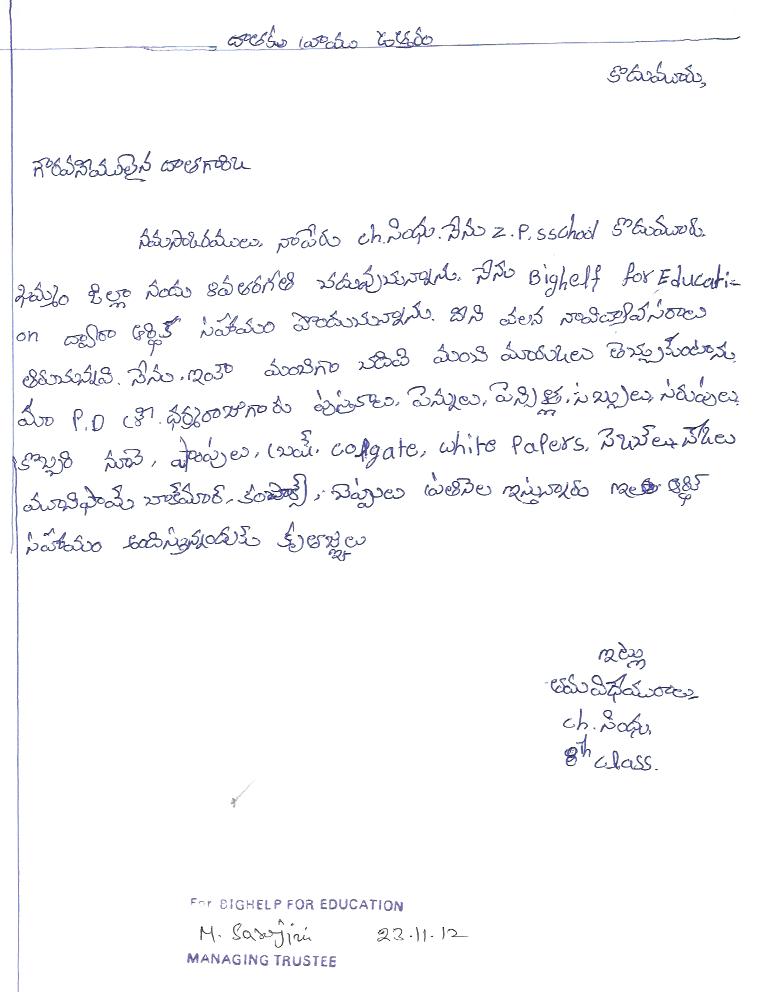 దాతకు వ్రాయు ఉత్తరం
కొదుమూరు,
గౌరవనీయులైన దాతగారికి
నమస్కారములు. నాపేరు ch.సింధు. నేను Z.P.sschool కొదుమూరు.
ఖమ్మం జిల్లా నందు 8వతరగతి చదువుచున్నాను. నేను Bighelf for Educati-
on ద్వారా ఆర్థిక సహాయం పొందుచున్నాను. దీని వలన నావిద్యావసరాలు
తీరుచున్నవి. నేను ఇంకా మంచిగా చదివి మంచి మార్కులు తెచ్చుకుంటాను.
మా P.D శ్రీ. ధర్మరాజుగారు పుస్తకాలు, పెన్నులు, పెన్సిళ్లు, సబ్బులు, సరుపులు,
కొబ్బరి నూనె, షాంపులు, బ్రష్, colgate, white Papers,
చెప్పులు ప్రతినెల ఇస్తున్నారు ఆర్థిక
సహాయం అందిస్తున్నందుకు కృతజ్ఞతలు
ఇట్లు
తమవిధేయురాలు
ch. సింధు,
8th class.
For BIGHELP FOR EDUCATION
M. Sarojini 23.11.12
MANAGING TRUSTEE